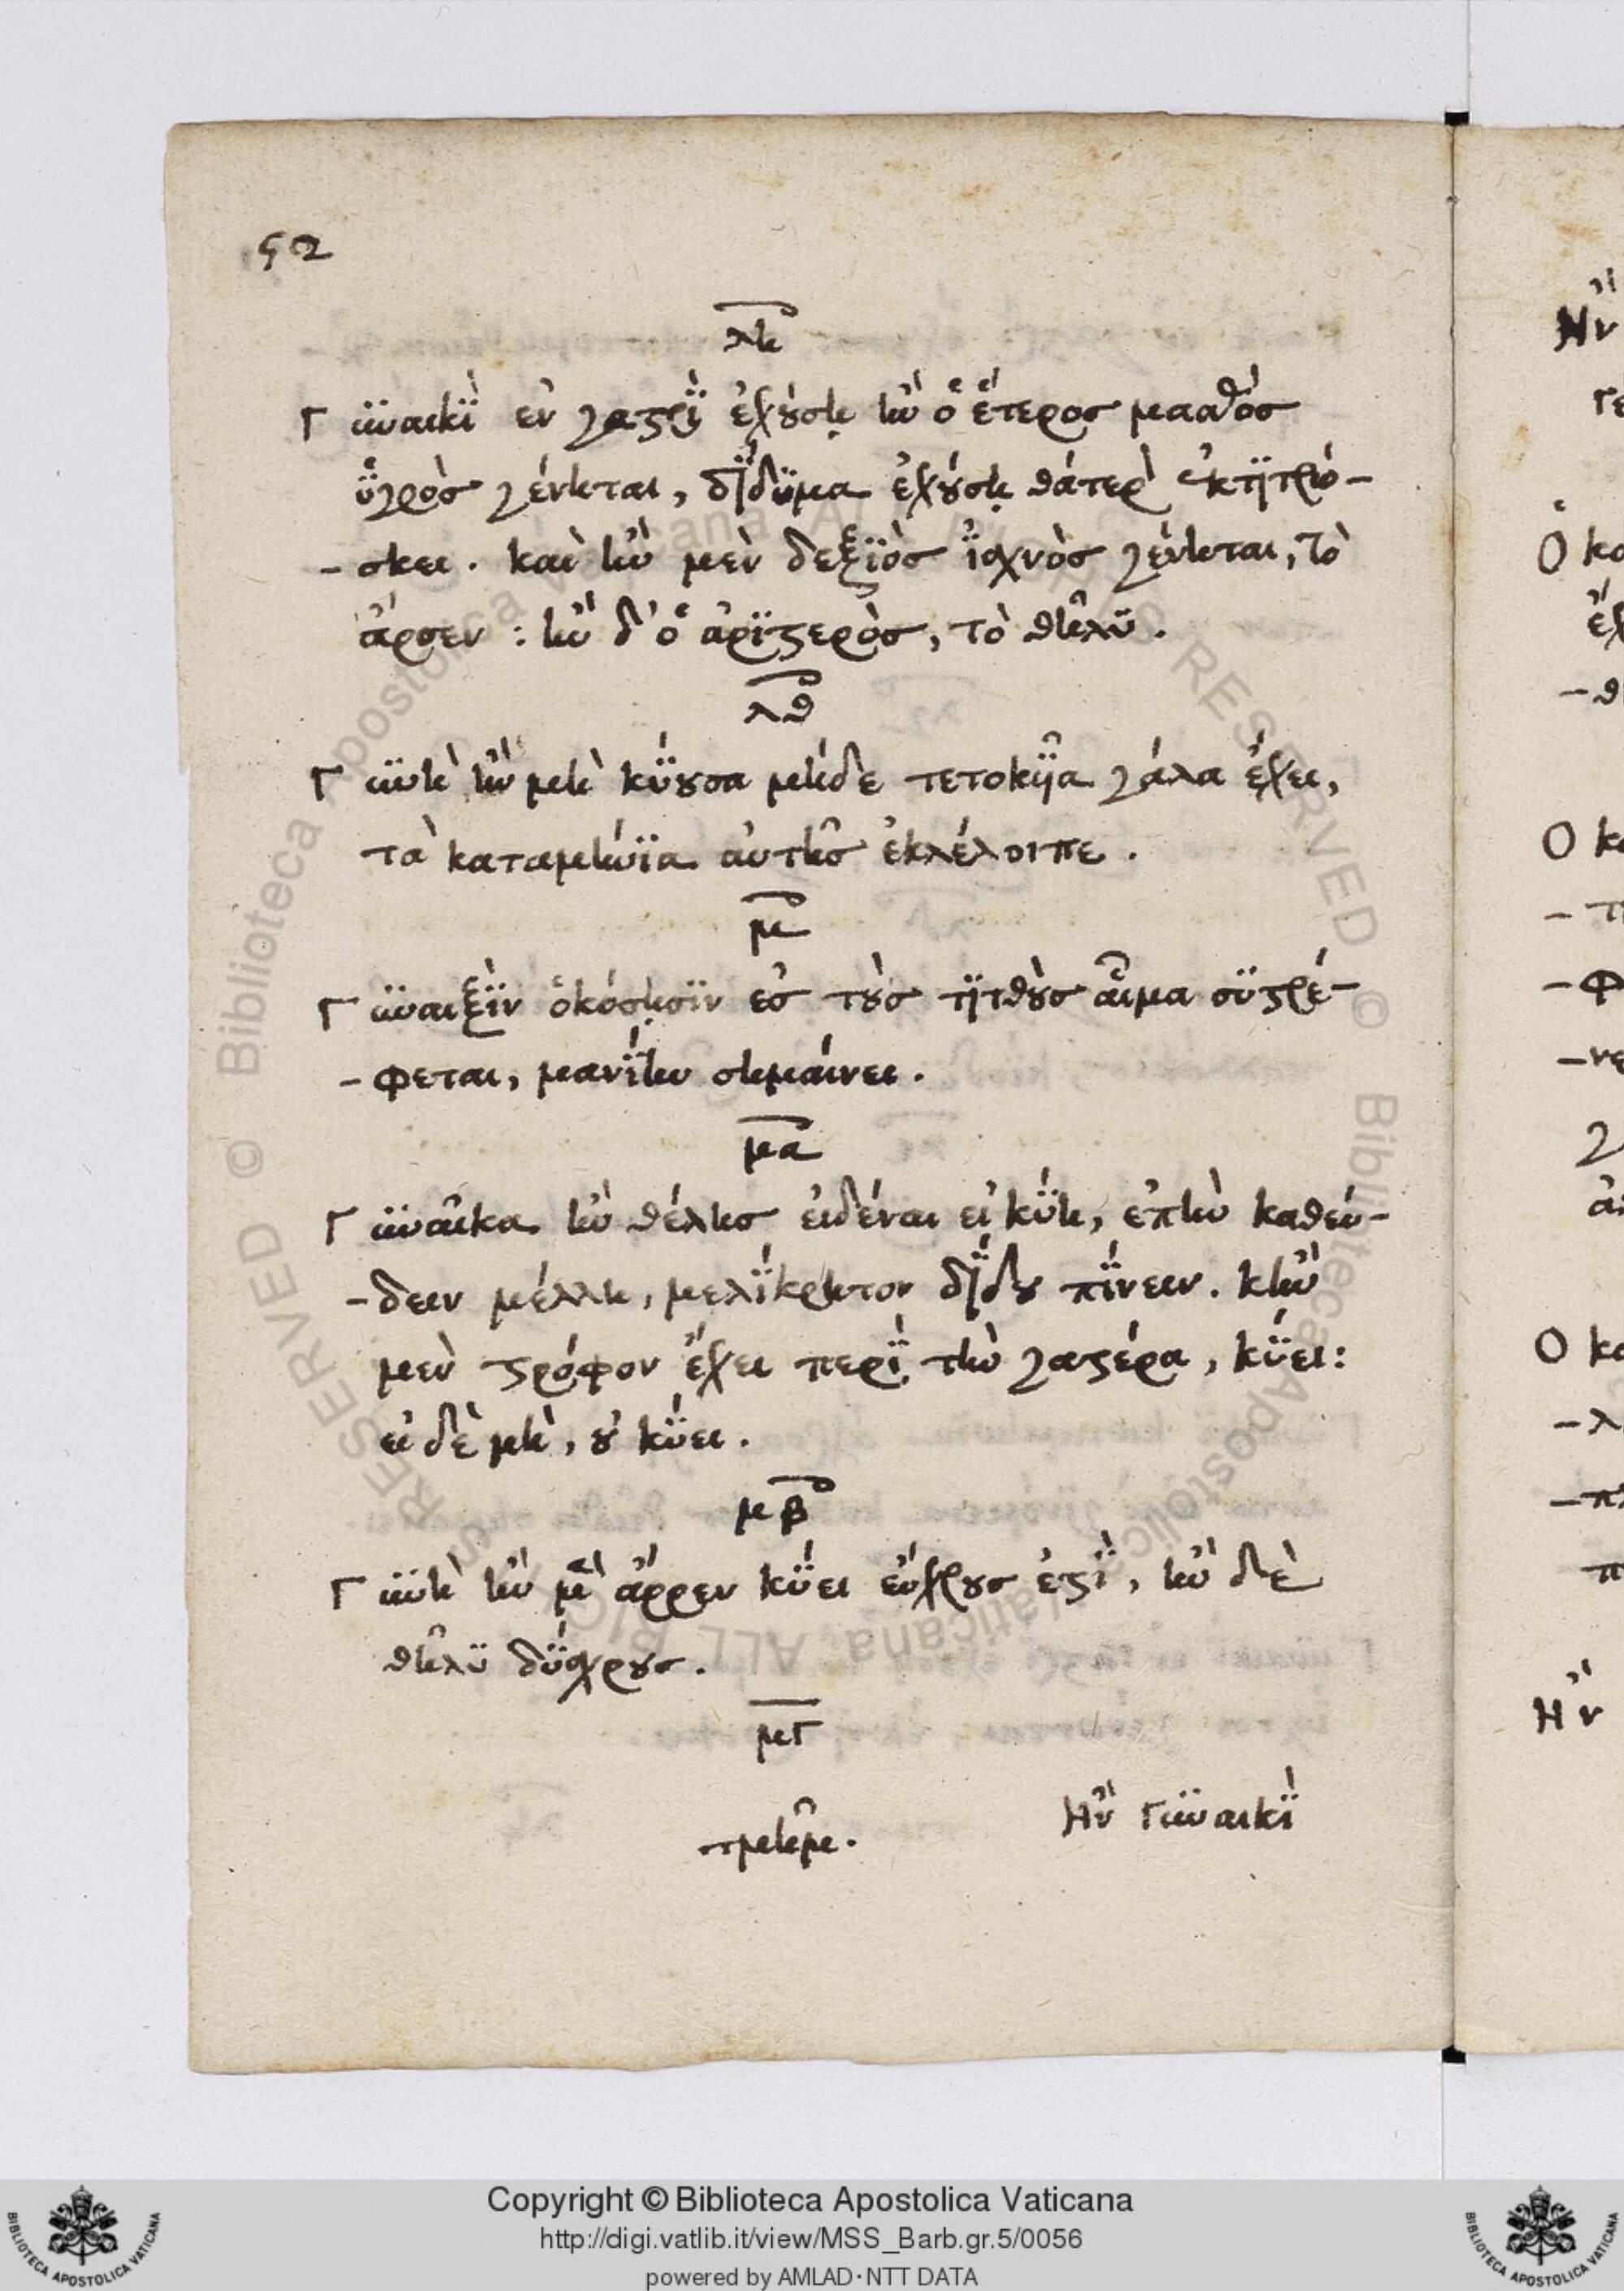 52
λη
Γυναικὶ ἐν γαστρὶ ἐχούσῃ ἢν ὁ ἕτερος μασθὸς
ὑγρὸς γένηται, δίδυμα ἐχούσῃ θάτερὶ ἐκτιτρώ-
-σκει. καὶ ἢν μὲν δεξιὸς ἰσχνὸς γένηται, τὸ
ἄρσεν: ἢν δ' ὁ ἀριστερὸς, τὸ θῆλυ.
λθ
Γυνὴ ἢν μὴ κύουσα μήδε τετοκυῖα γάλα ἔχει,
τὰ καταμήνια αὐτῆς ἐκλέλοιπε.
μ
Γυναιξὶν ὁκόσῃσιν ἐς τοὺς τιτθοὺς αἷμα συστρέ-
-φεται, μανίην σημαίνει.
μα
Γυναῖκα ἢν θέλῃς εἰδέναι εἰ κύη, ἐπὴν καθεύ-
-δειν μέλλη, μελίκρητον δίδου πίνειν. κἢν
μὲν στρόφον ἔχει περὶ τὴν γαστέρα, κύει:
εἰ δὲ μὴ, οὐ κύει.
μβ
Γυνὴ ἢν μὲν ἄρρεν κύει εὔχρους ἐστὶ, ἢν δὲ
θῆλυ δύσχρους.
μγ
τμῆμ.
Ἢν Γυναικὶ
Ἢν
Copyright © Biblioteca Apostolica Vaticana
http://digi.vatlib.it/view/MSS_Barb.gr.5/0056
powered by AMLAD·NTT DATA